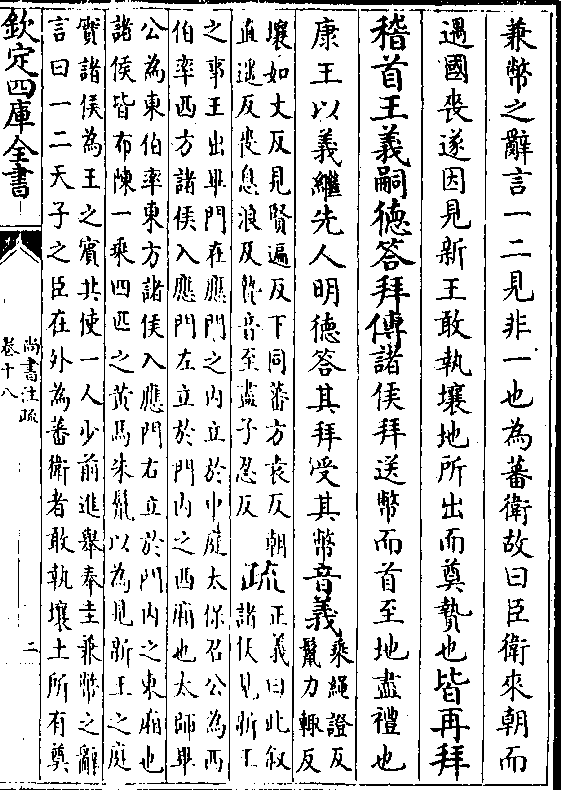 兼幣之辭言一二見非一也為蕃衛故曰臣衛來朝而
遇國喪遂因見新王敢執壤地所出而奠贄也皆再拜
稽首王義嗣德答拜傳諸侯拜送幣而首至地盡禮也
康王以義繼先人明德答其拜受其幣音義乘繩證反
鬛力輙反
壤如丈反見賢遍反下同蕃方袁反朝
直遥反喪息浪反贄音至盡子忍反
疏正義曰此叙
諸侯見新王
之事王出畢門在應門之内立於中庭太保召公為西
伯率西方諸侯入應門左立於門内之西廂也太師畢
公為東伯率東方諸侯入應門右立於門内之東廂也
諸侯皆布陳一乘四匹之黄馬朱鬛以為見新王之庭
實諸侯為王之賓共使一人少前進舉奉圭兼幣之辭
言曰一二天子之臣在外為蕃衛者敢執壤土所有奠
欽定四庫全書
尚書注疏
卷十八
二